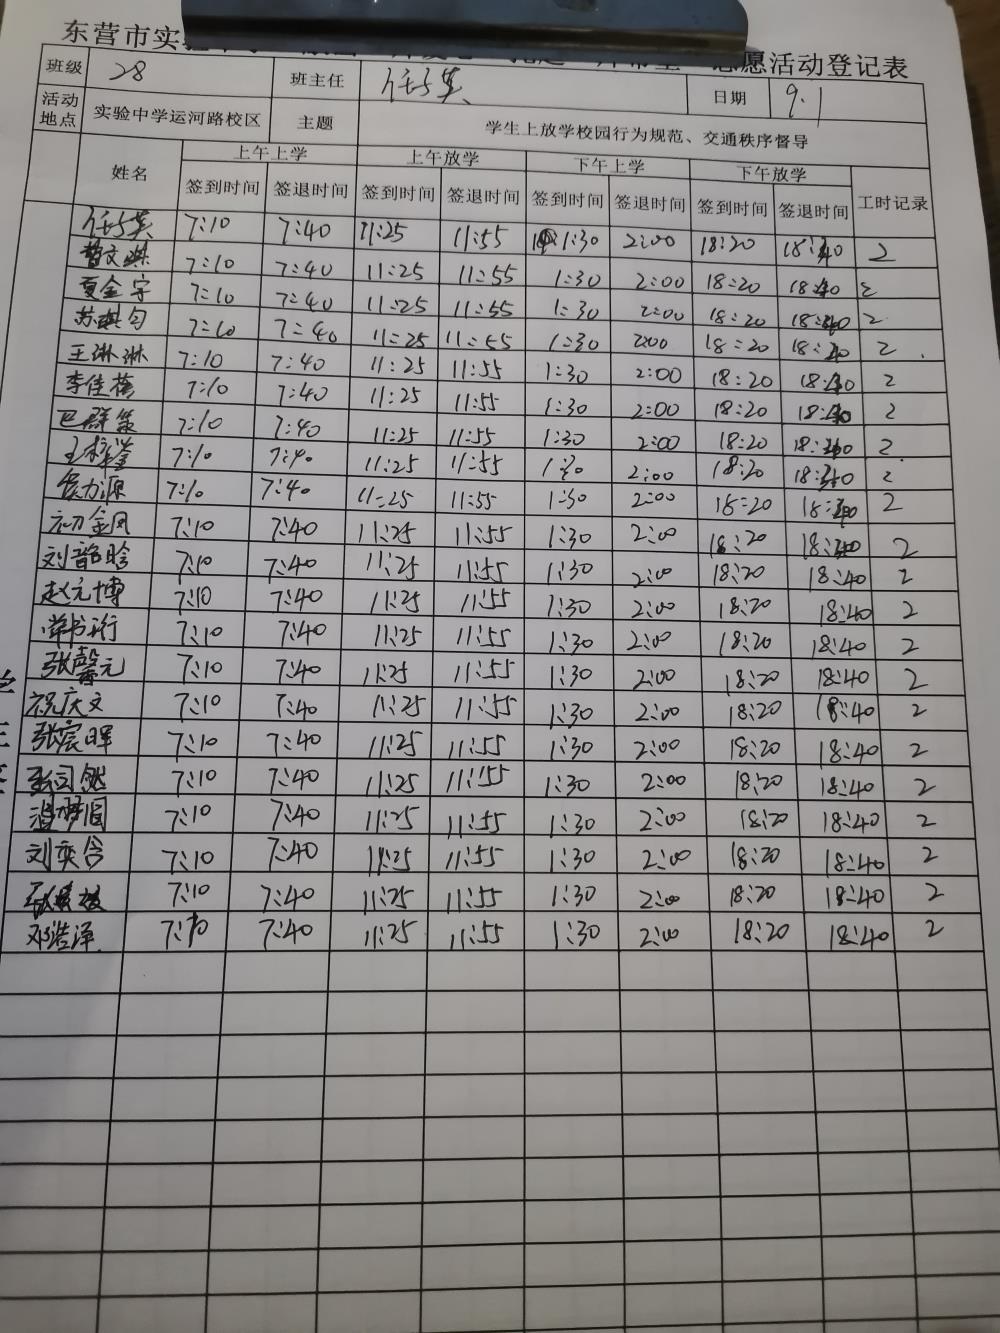 东营市实验 志愿活动登记表
班级 28 班主任 任巧英 日期 9.1
活动地点 实验中学运河路校区 主题 学生上放学校园行为规范、交通秩序督导
姓名 上午上学 上午放学 下午上学 下午放学 工时记录
签到时间 签退时间 签到时间 签退时间 签到时间 签退时间 签到时间 签退时间
任巧英 7:10 7:40 11:25 11:55 1:30 2:00 18:20 18:40 2
7:10 7:40 11:25 11:55 1:30 2:00 18:20 18:40 2
夏金宇 7:10 7:40 11:25 11:55 1:30 2:00 18:20 18:40 2
苏琪匀 7:10 7:40 11:25 11:55 1:30 2:00 18:20 18:40 2
王琳淋 7:10 7:40 11:25 11:55 1:30 2:00 18:20 18:40 2
李佳 7:10 7:40 11:25 11:55 1:30 2:00 18:20 18:40 2
巴群策 7:10 7:40 11:25 11:55 1:30 2:00 18:20 18:40 2
王梓鉴 7:10 7:40 11:25 11:55 1:30 2:00 18:20 18:40 2
力源 7:10 7:40 11:25 11:55 1:30 2:00 18:20 18:40 2
初金凤 7:10 7:40 11:25 11:55 1:30 2:00 18:20 18:40 2
刘韶晗 7:10 7:40 11:25 11:55 1:30 2:00 18:20 18:40 2
赵元博 7:10 7:40 11:25 11:55 1:30 2:00 18:20 18:40 2
书珩 7:10 7:40 11:25 11:55 1:30 2:00 18:20 18:40 2
张馨元 7:10 7:40 11:25 11:55 1:30 2:00 18:20 18:40 2
祝庆文 7:10 7:40 11:25 11:55 1:30 2:00 18:20 18:40 2
张宸晖 7:10 7:40 11:25 11:55 1:30 2:00 18:20 18:40 2
7:10 7:40 11:25 11:55 1:30 2:00 18:20 18:40 2
7:10 7:40 11:25 11:55 1:30 2:00 18:20 18:40 2
刘奕含 7:10 7:40 11:25 11:55 1:30 2:00 18:20 18:40 2
7:10 7:40 11:25 11:55 1:30 2:00 18:20 18:40 2
邓浩泽 7:10 7:40 11:25 11:55 1:30 2:00 18:20 18:40 2